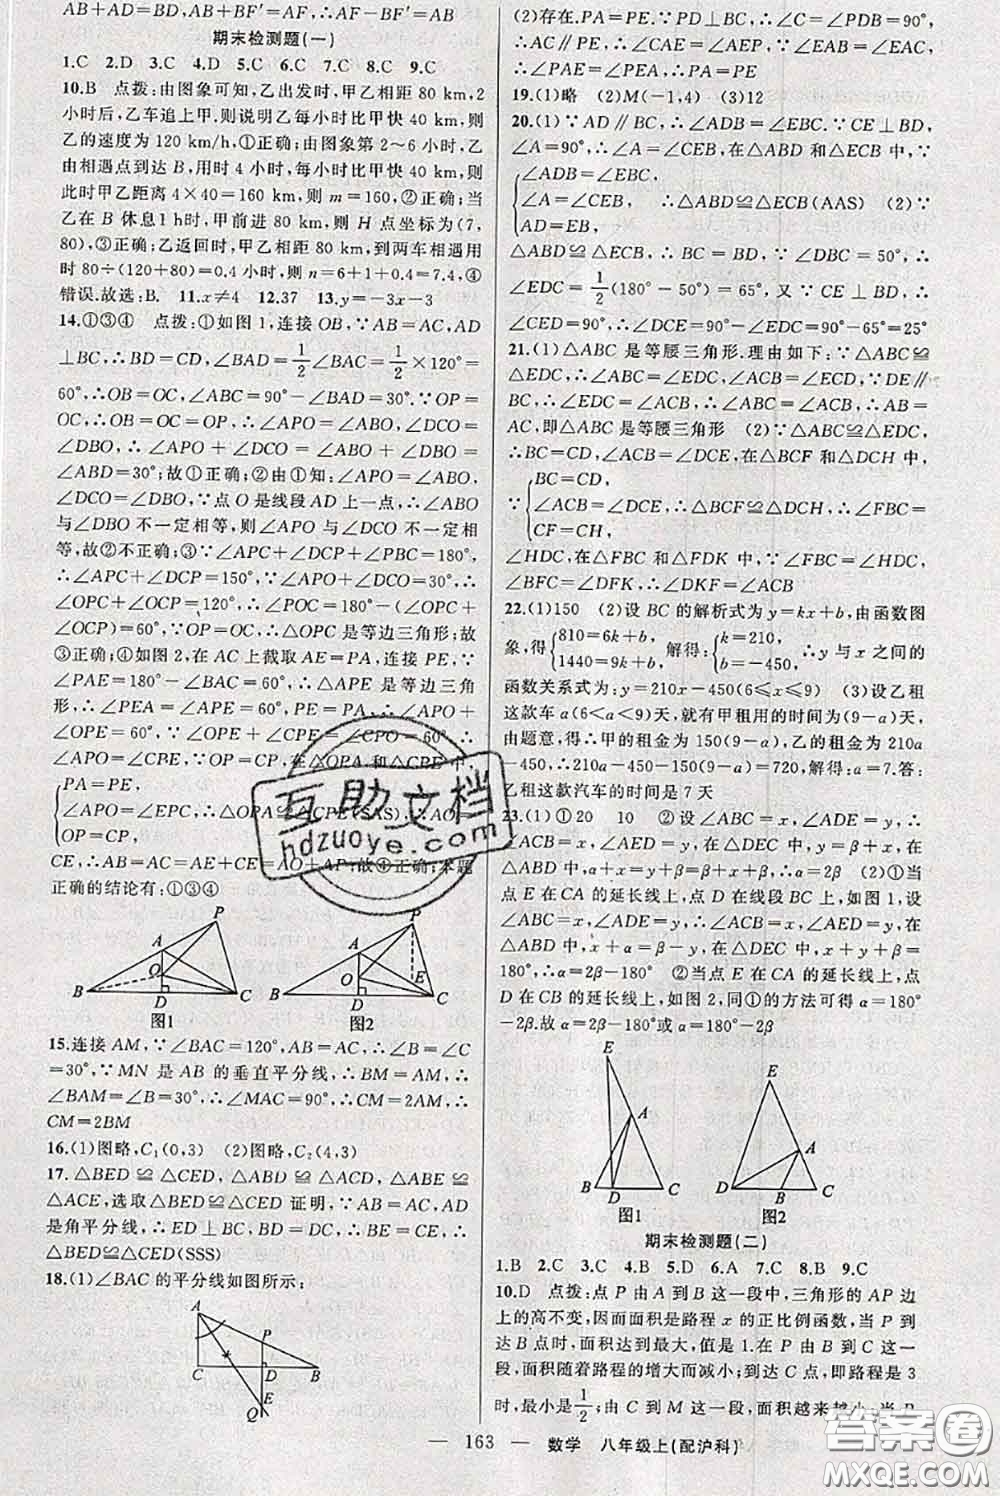 AB+AD=BD,AB+BF′=AF,∴AF-BF′=AB
期末检测题(一)
1.C 2.D 3.C 4.D 5.C 6.C 7.C 8.C 9.C
10.B 点拨:由图象可知,乙出发时,甲乙相距 80 km,2
小时后,乙车追上甲.则说明乙每小时比甲快 40 km,则
乙的速度为 120 km/h,①正确;由图象第 2~6 小时,乙
由相遇点到达 B,用时 4 小时,每小时比甲快 40 km,则
此时甲乙距离 4×40=160 km,则 m=160,②正确;当
乙在 B 休息 1 h 时,甲前进 80 km,则 H 点坐标为(7,
80),③正确;乙返回时,甲乙相距 80 km,到两车相遇用
时 80÷(120+80)=0.4 小时,则 n=6+1+0.4=7.4,④
错误.故选:B. 11.x≠4 12.37 13.y=-3x-3
14.①③④ 点拨:①如图 1,连接 OB,∵AB=AC,AD
⊥BC,∴BD=CD,∠BAD=1/2∠BAC=1/2×120°=
60°,∴OB=OC,∠ABC=90°-∠BAD=30°.∵OP=
OC,∴OB=OC=OP,∴∠APO=∠ABO,∠DCO=
∠DBO,∴∠APO+∠DCO=∠ABO+∠DBO=
∠ABD=30°;故①正确;②由①知:∠APO=∠ABO,
∠DCO=∠DBO,∵点 O 是线段 AD 上一点,∴∠ABO
与∠DBO 不一定相等,则∠APO 与∠DCO 不一定相
等,故②不正确;③∵∠APC+∠DCP+∠PBC=180°,
∴∠APC+∠DCP=150°,∵∠APO+∠DCO=30°,∴
∠OPC+∠OCP=120°,∴∠POC=180°-(∠OPC+
∠OCP)=60°,∵OP=OC,∴△OPC 是等边三角形;故
③正确;④如图 2,在 AC 上截取 AE=PA,连接 PE,∵
∠PAE=180°-∠BAC=60°,∴△APE 是等边三角
形,∴∠PEA=∠APE=60°,PE=PA,∴∠APO+
∠OPE=60°,∵∠OPE+∠CPE=∠CPO=60°,∴
∠APO=∠CPE,∵OP=CP,在△OPA 和△CPE 中,
PA=PE,
∠APO=∠EPC,∴△OPA≌△CPE(SAS),∴AO=
OP=CP,
CE,∴AB=AC=AE+CE=AO+AP;故④正确;本题
正确的结论有:①③④
A P O B D C 图1
A P O E B D C 图2
15.连接 AM,∵∠BAC=120°,AB=AC,∴∠B=∠C
=30°,∵MN 是 AB 的垂直平分线,∴BM=AM,∴
∠BAM=∠B=30°,∴∠MAC=90°,∴CM=2AM,∴
CM=2BM
16.(1)图略,C₁(0,3) (2)图略,C₂(4,3)
17.△BED≌△CED,△ABD≌△ACD,△ABE≌
△ACE,选取△BED≌△CED 证明,∵AB=AC,AD
是角平分线,∴ED⊥BC,BD=DC,∴BE=CE,∴
△BED≌△CED(SSS)
18.(1)∠BAC的平分线如图所示:
A P C D B E Q
(2)存在.PA=PE.∵PD⊥BC,∴∠PDB=90°,
∴AC∥PE,∴∠CAE=∠PEA,∵∠BAE=∠EAC,
∴∠PAE=∠PEA,∴PA=PE
19.(1)略 (2)M(-1,4) (3)12
20.(1)∵AD∥BC,∴∠ADB=∠EBC.∵CE⊥BD,
∠A=90°,∴∠A=∠CEB,在△ABD 和△ECB 中,∵
∠ADB=∠EBC,
∠A=∠CEB, ∴△ABD≌△ECB(AAS) (2)∵
AD=EB,
△ABD≌△ECB,∴BC=BD.∵∠DBC=50°,∴
∠EDC=1/2(180°-50°)=65°,又∵CE⊥BD,∴
∠CED=90°,∴∠DCE=90°-∠EDC=90°-65°=25°
21.(1)△ABC 是等腰三角形.理由如下:∵△ABC≌
△EDC,∴∠ABC=∠EDC,∠ACB=∠DCE,∵DE∥
BC,∴∠EDC=∠ACB,∴∠ABC=∠ACB,∴AB=
AC,即△ABC 是等腰三角形 (2)∵△ABC≌△EDC,
∴BC=CD,∠ACB=∠DCE,在△BCF 和△DCH 中,
BC=CD,
∵ ∠ACB=∠DCE,∴△BCF≌△DCH,∴∠FBC=
CF=CH,
∠HDC,在△FBC 和△FDK 中,∵∠FBC=∠HDC,
∠BFC=∠DFK,∴∠DKF=∠ACB
22.(1)150 (2)设 BC 的解析式为 y=kx+b,由函数图
象,得 810=6k+b, 1440=9k+b, 解得: k=210, b=-450, ∴y 与 x 之间的
函数关系式为:y=210x-450(6≤x≤9) (3)设乙租
这款车 a(6<a<9)天,就有甲租用的时间为(9-a)天,
由题意,得∴甲的租金为 150(9-a),乙的租金为 210a
-450,∴210a-450-150(9-a)=720,解得:a=7.答:
乙租这款汽车的时间是 7 天
23.(1)①20 10 ②设∠ABC=x,∠ADE=y,∴
∠ACB=x,∠AED=y,在△DEC 中,y=β+x,在
△ABD 中,α+x=y+β=β+x+β,∴α=2β (2)①当
点 E 在 CA 的延长线上,点 D 在线段 BC 上,如图 1,设
∠ABC=x,∠ADE=y,∴∠ACB=x,∠AED=y,在
△ABD 中,x+α=β-y,在△DEC 中,x+y+β=
180°,∴α=2β-180° ②当点 E 在 CA 的延长线上,点
D 在 CB 的延长线上,如图 2,同①的方法可得 α=180°
-2β.故 α=2β-180°或 α=180°-2β
E A B D C 图1
E A D B C 图2
期末检测题(二)
1.B 2.C 3.C 4.B 5.D 6.A 7.C 8.B 9.C
10.D 点拨:点 P 由 A 到 B 这一段中,三角形的 AP 边
上的高不变,因而面积是路程 x 的正比例函数,当 P 到
达 B 点时,面积达到最大,值是 1.在 P 由 B 到 C 这一
段,面积随着路程的增大而减小;到达 C 点,即路程是 3
时,最小是 1/2;由 C 到 M 这一段,面积越来越小;当 P
— 163 — 数学 八年级上(配沪科)
互助文档
hdzuoye.com
答案圈
MXQE.COM